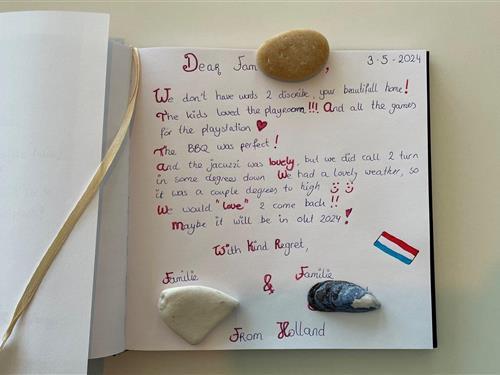 Dear Fam ,
3-5-2024
We don't have words 2 discribe, your beautifull home!
The kids loved the playroom!!! And all the games
for the playstation
The BBQ was perfect!
And the jacuzzi was lovely, but we did call 2 turn
in some degrees down We had a lovely weather, so
it was a couple degrees to high
We would "love" 2 come back!!
Maybe it will be in okt 2024!
With Kind Regret,
Familie & Familie
From Holland